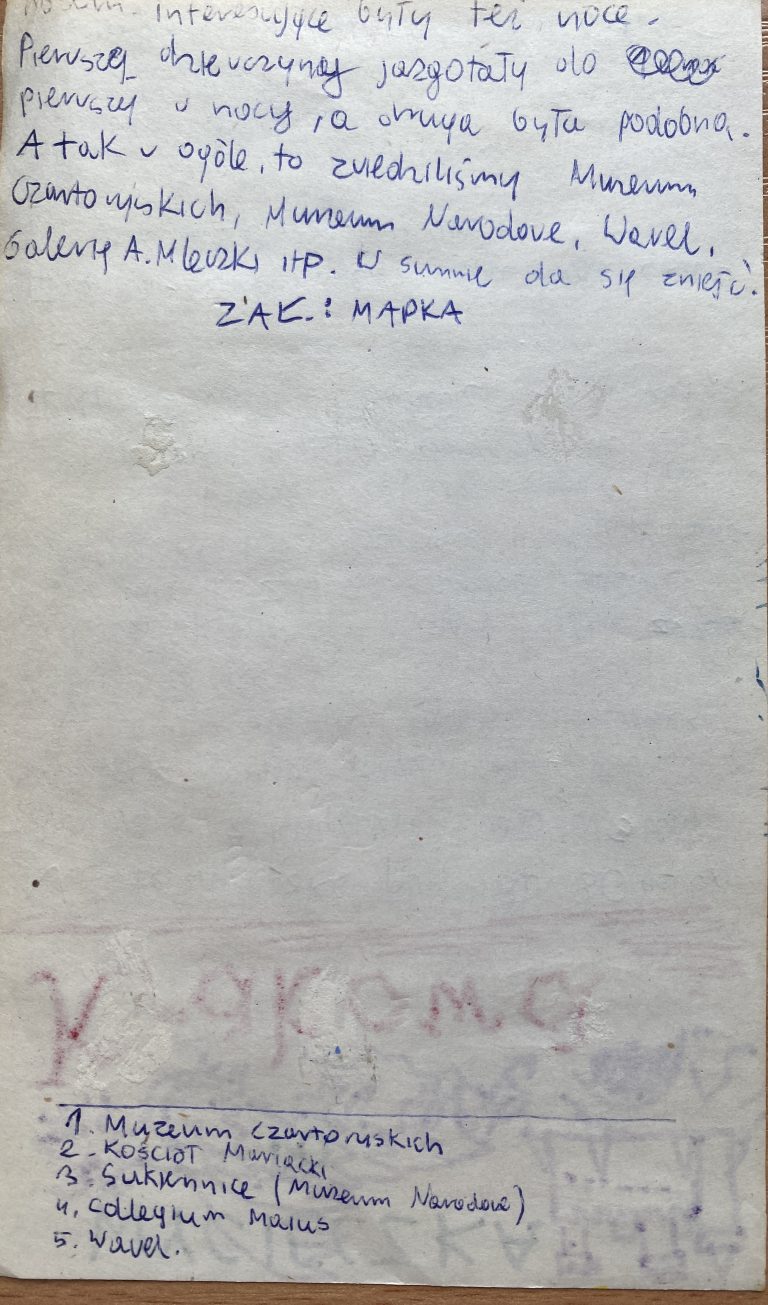 interesujące były też noce.
Pierwszej dziewczyny jazgotały do
pierwszej w nocy, a druga była podobna.
A tak w ogóle, to zwiedziliśmy Muzeum
Czartoryskich, Muzeum Narodowe, Wawel,
Galerię A. Mleczki itp. W sumie da się znieść.
ZAŁ.: MAPKA
1. Muzeum Czartoryskich
2. Kościół Mariacki
3. Sukiennice (Muzeum Narodowe)
4. Collegium Maius
5. Wawel.